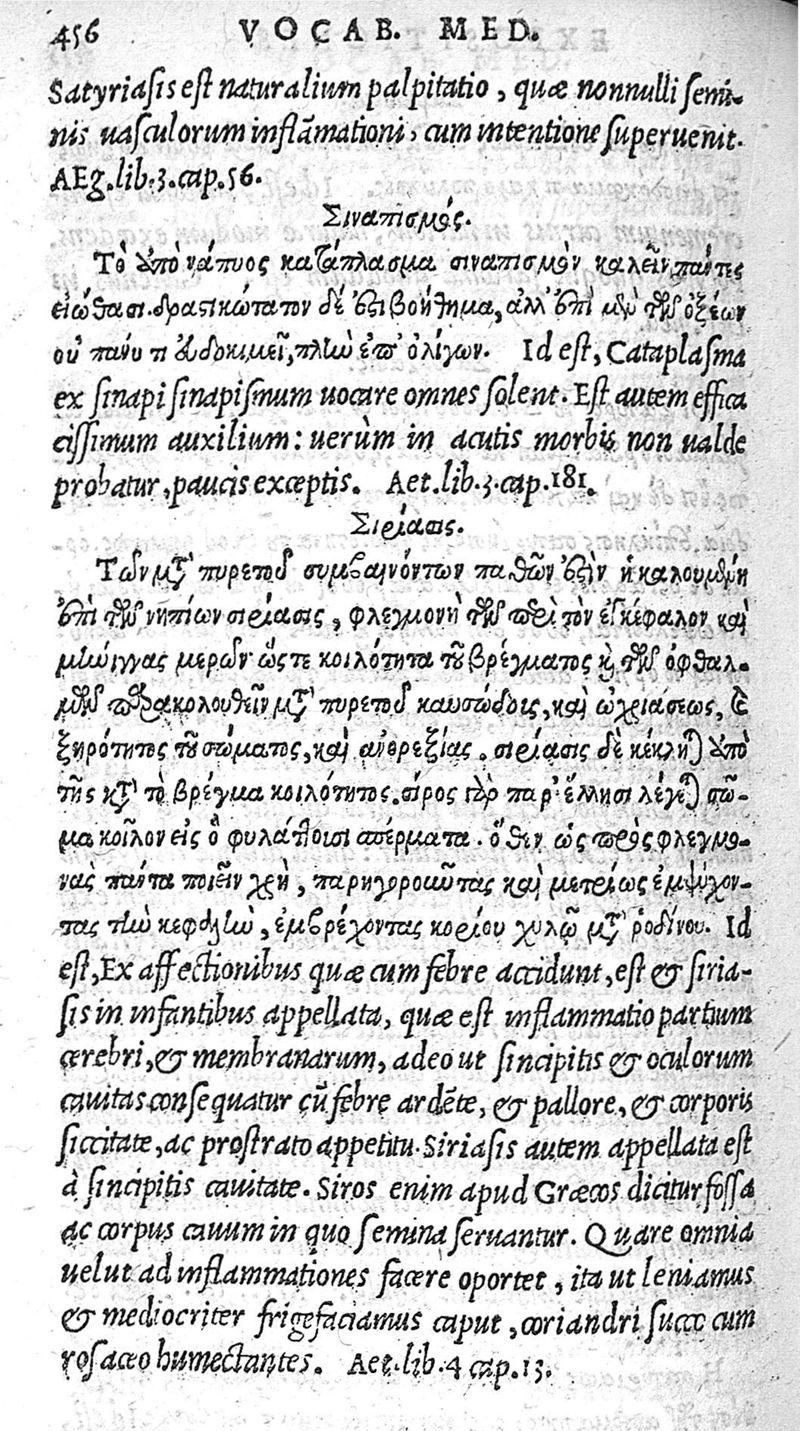 456 VOCAB. MED.
Satyriasis est naturalium palpitatio, quæ nonnulli semi-
nis uasculorum inflāmationi, cum intentione superuenit.
AEg. lib. 3. cap. 56.
Σιναπισμός.
Τὸ ὑπὸ νάπυος κατάπλασμα σιναπισμὸν καλεῖν πάντες
εἰώθασι. δραστικώτατον δέ ἐστι βοήθημα, ἀλλ' ἐπὶ μὲν τῶν ὀξέων
οὐ πάνυ τι εὐδοκιμεῖ, πλὴν ἐπ' ὀλίγων. Id est, Cataplasma
ex sinapi sinapismum uocare omnes solent. Est autem effica
cissimum auxilium: uerùm in acutis morbis non ualde
probatur, paucis exceptis. Aet. lib. 3. cap. 181.
Σιρίασις.
Τῶν μετὰ πυρετοῦ συμβαινόντων παθῶν ἐστὶν ἡ καλουμένη
ἐπὶ τῶν νηπίων σιρίασις, φλεγμονὴ τῶν περὶ τὸν ἐγκέφαλον καὶ
μήνιγγας μερῶν ὥστε κοιλότητα τοῦ βρέγματος καὶ τῶν ὀφθαλ-
μῶν παρακολουθεῖν μετὰ πυρετοῦ καυσώδοις, καὶ ὠχριάσεως, καὶ
ξηρότητος τοῦ σώματος, καὶ ἀνορεξίας. σιρίασις δὲ κέκληται ὑπὸ
τῆς κατὰ τὸ βρέγμα κοιλότητος. σίρος γὰρ παρ' ἕλλησι λέγεται σῶ-
μα κοῖλον εἰς ὃ φυλάττουσι σπέρματα. ὅθεν ὡς πρὸς φλεγμο-
νὰς πάντα ποιεῖν χρὴ, παρηγοροῦντας καὶ μετρίως ἐμψύχον-
τας τὴν κεφαλὴν, ἐμβρέχοντας κορίου χυλῷ μετὰ ῥοδίνου. Id
est, Ex affectionibus quæ cum febre accidunt, est & siria-
sis in infantibus appellata, quæ est inflammatio partium
cerebri, & membranarum, adeo ut sincipitis & oculorum
cauitas consequatur cū febre ardēte, & pallore, & corporis
siccitate, ac prostrato appetitu. Siriasis autem appellata est
à sincipitis cauitate. Siros enim apud Græcos dicitur fossa
ac corpus cauum in quo semina seruantur. Quare omnia
uelut ad inflammationes facere oportet, ita ut leniamus
& mediocriter frigefaciamus caput, coriandri succo cum
rosaceo humectantes. Aet. lib. 4 cap. 13.